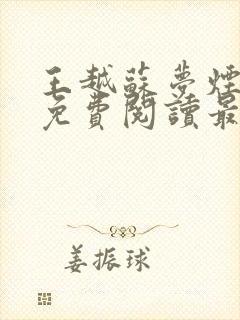 王越蘇夢煙
免費閱讀最
姜振球